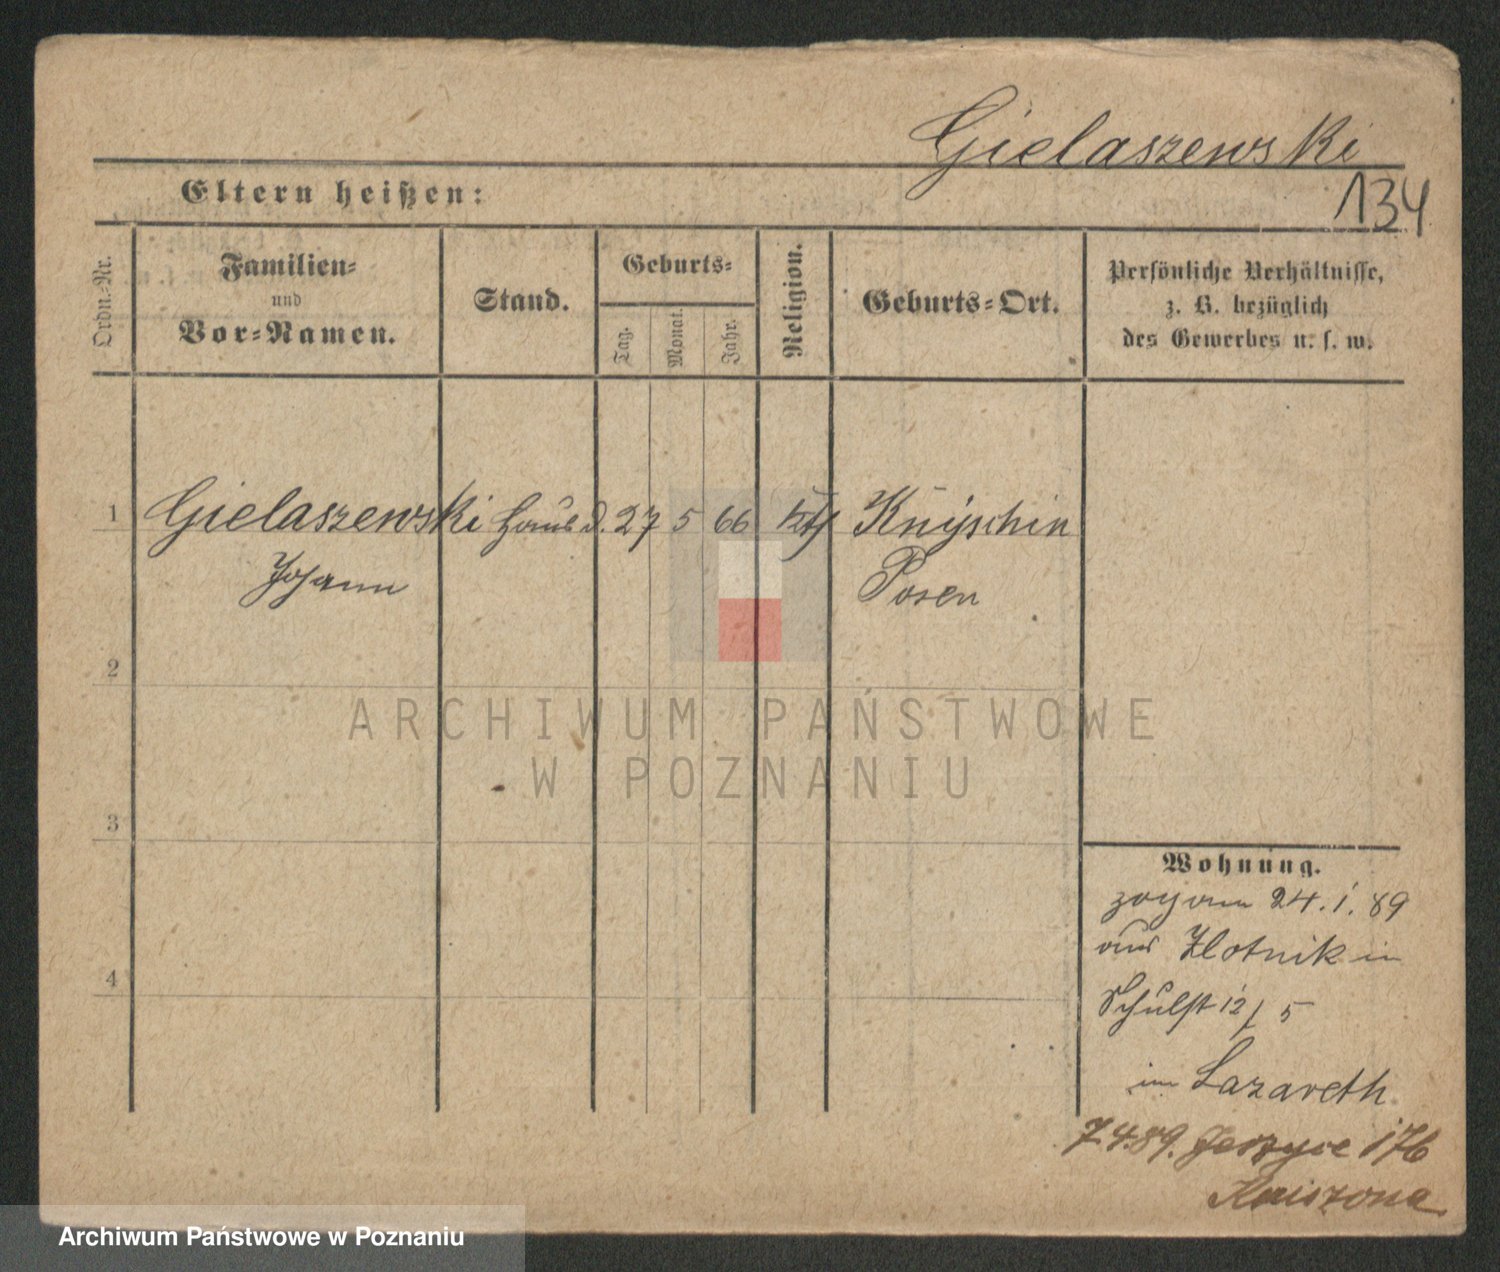 Gielaszewski
134
Eltern heißen:
Ordn.-Nr.
Familien-
und
Vor-Namen.
Stand.
Geburts-
Tag.
Monat.
Jahr.
Religion.
Geburts-Ort.
Persönliche Verhältnisse,
z. B. bezüglich
des Gewerbes u. s. w.
1
Gielaszewski Hausd. 27 5 66 kth Knyschin
Johann Posen
2
3
4
Wohnung.
zog am 24. 1. 89
aus Zlotnik in
Schulst 12/5
im Lazareth
7.4.89. Jerzyce 176
ARCHIWUM PAŃSTWOWE
W POZNANIU
Archiwum Państwowe w Poznaniu